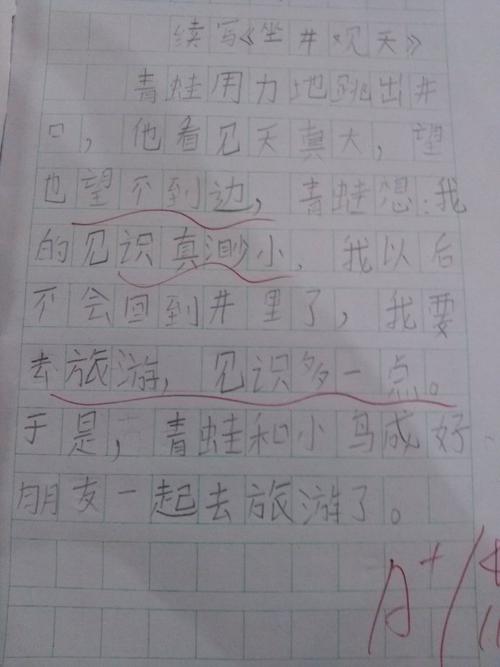 续写《坐井观天》
青蛙用力地跳出井
口，他看见天真大，望
也望不到边，青蛙想：我
的见识真渺小，我以后
不会回到井里了，我要
去旅游，见识多一点。
于是，青蛙和小鸟成好
朋友一起去旅游了。
A+/